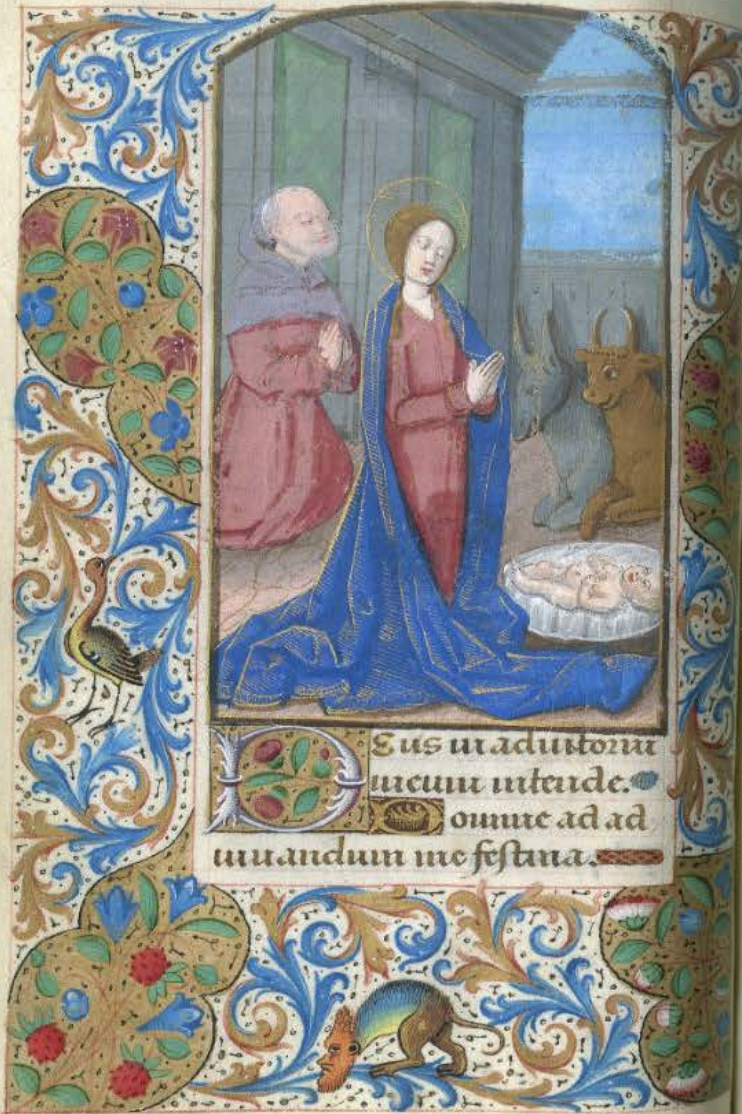 Deus in adiutoriu
meum intende.
Domine ad ad
iuuandum me festina.